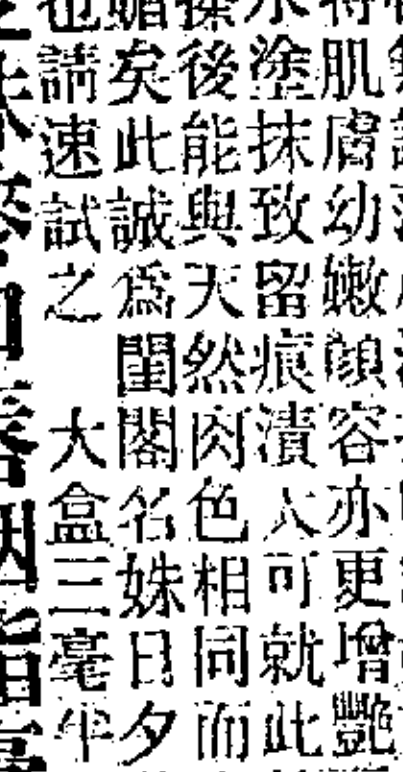 肌膚幼嫩顏容亦更增艷
水塗抹致留痕漬人可就此
搽後能與天然肉色相同而
媚矣此誠爲閨閣名姝日夕
也請速試之　大盒三毫半